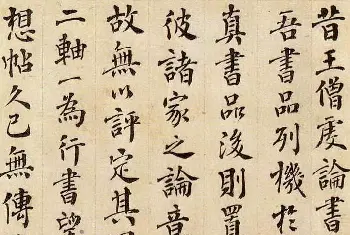 昔王僧虔論書
吾書品列機於
真書品後則置
彼諸家之論音
故無以評定其
二軸一為行書望
想帖久已無傳